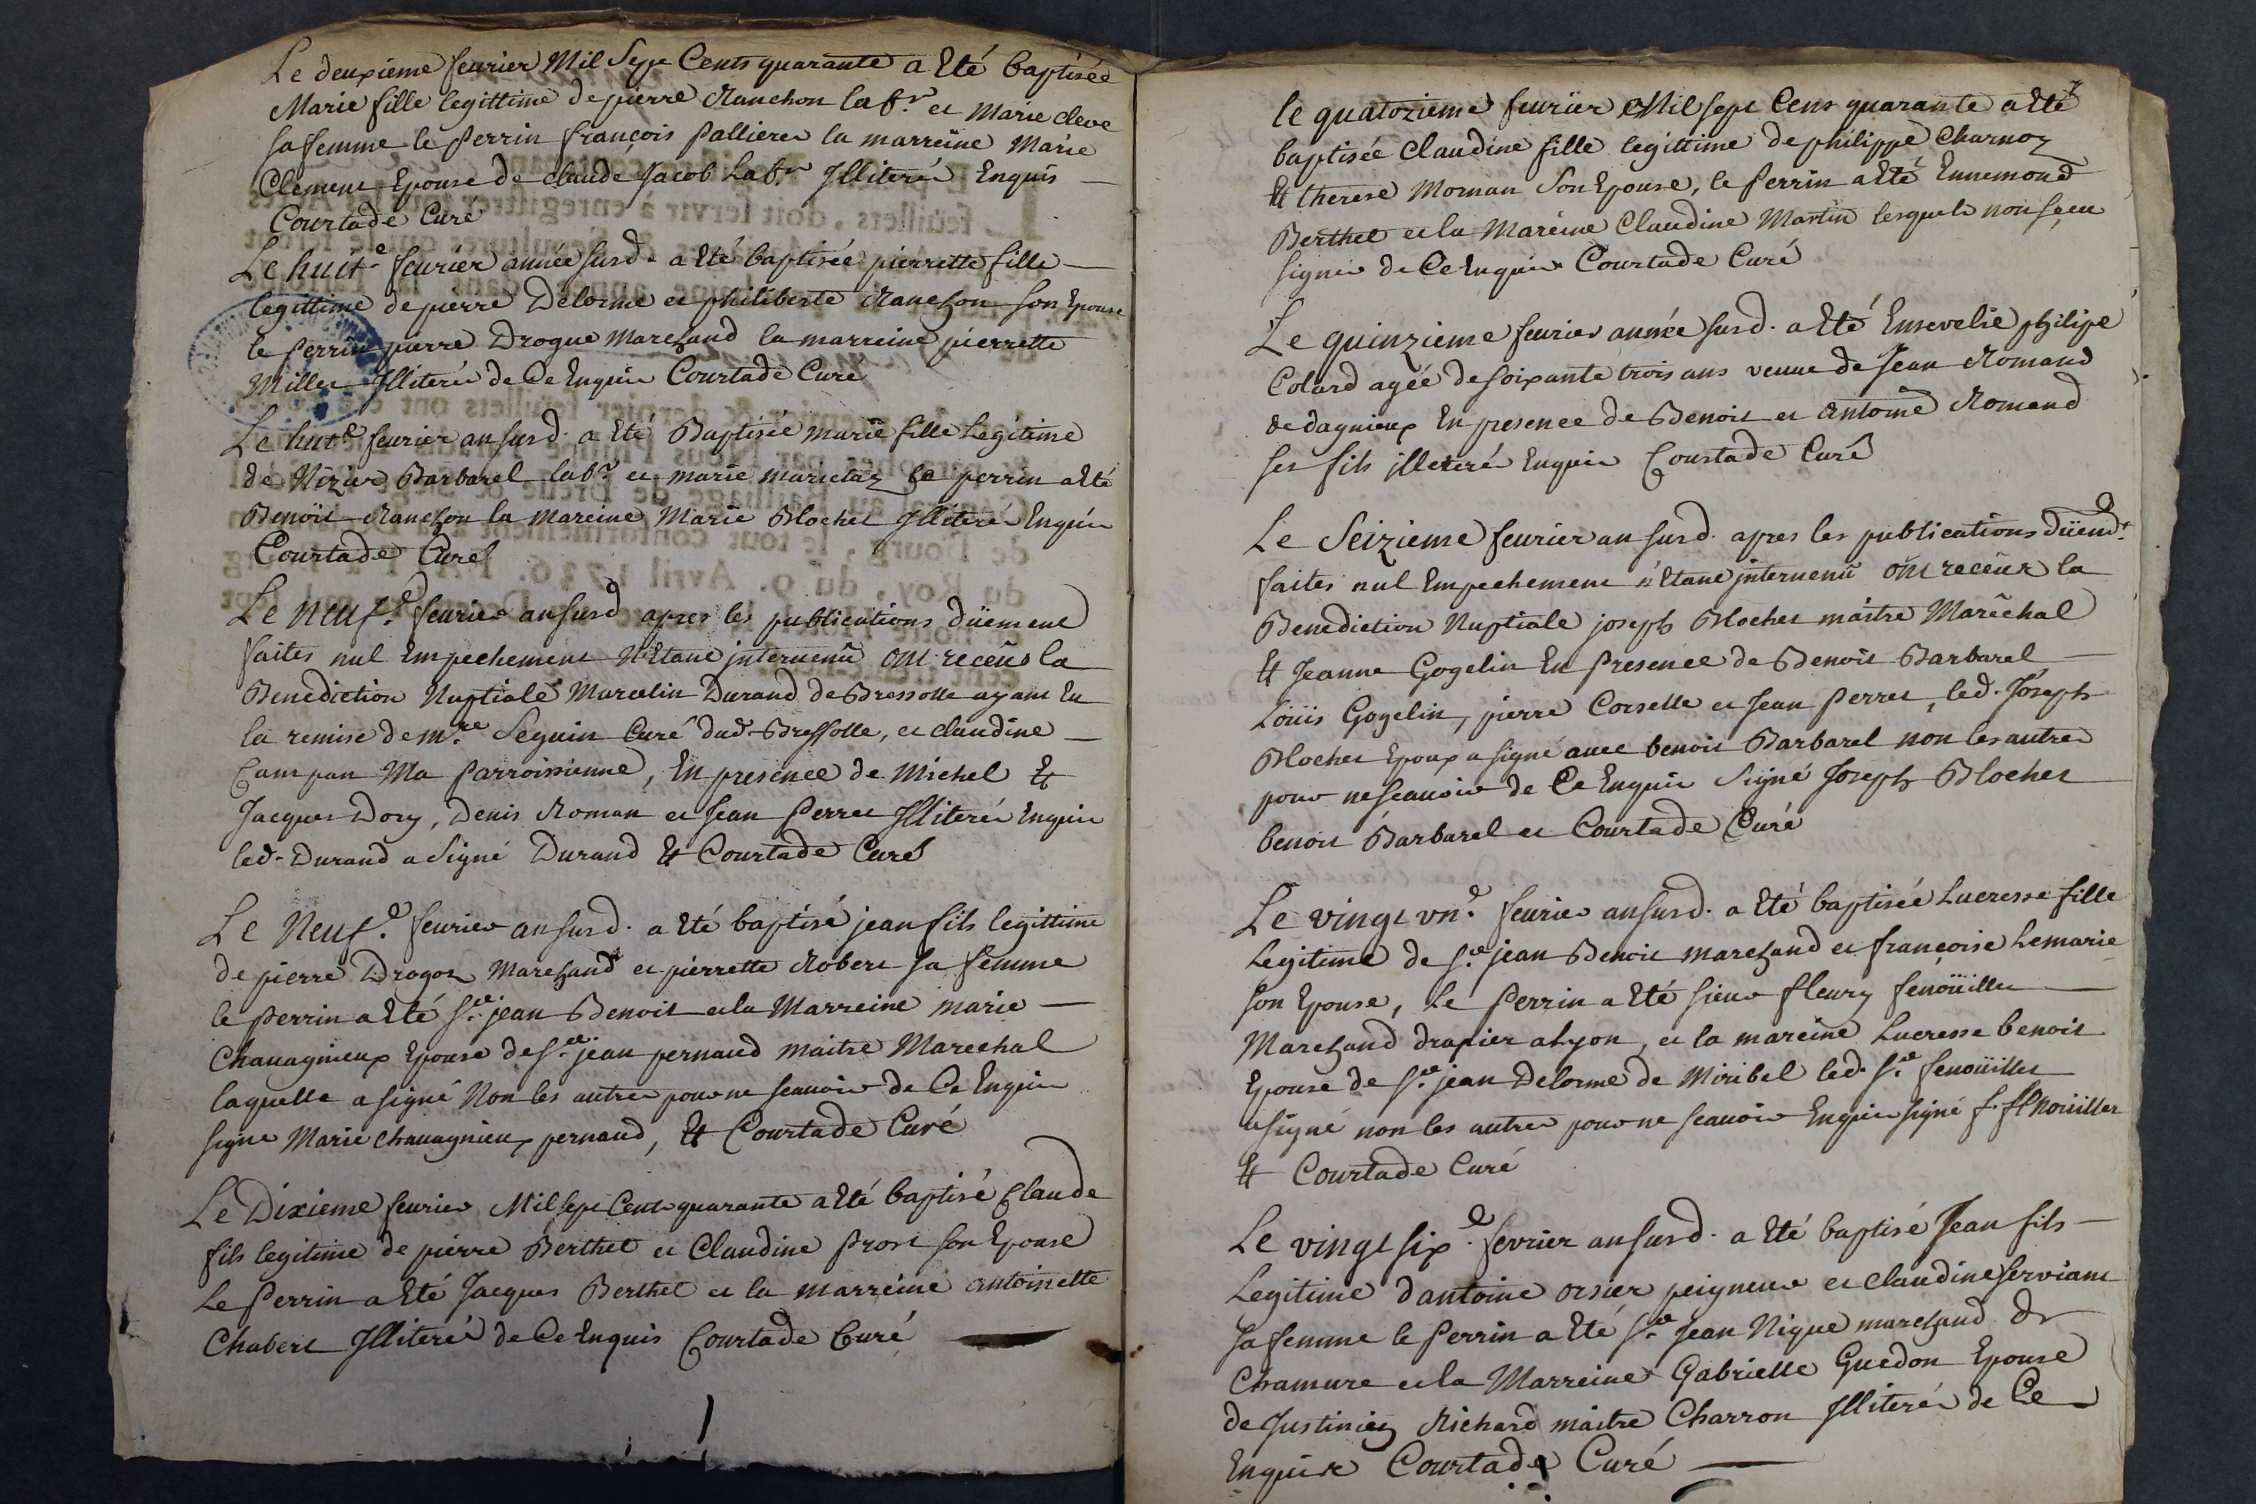 Le deuxieme feurier Mil Sept Cents quarante a Eté baptisée
Marie fille legittime de pierre Ranchon lab.r et Marie cleve
sa femme le Perrin françois Pallierer la marreine Marie
Clement Epouse de claude Jacob Lab.r Jlliterés Enquis
Courtade Curé
Le huit.e feurier année susd. a Eté baptisée pierrette fille
legittime de pierre Delorme et philiberte Ranchon son Epouse
le Perrin pierre Drogue Marchand la marreine pierrette
Millet Jlliterés de Ce Enquis Courtade Curé
Le huit.e feurier an susd. a Eté Baptisée marie fille Legitime
de Nizier Barbarel lab.r et marie marietaz le perrin a Eté
Benoit Ranchon la Mareine Marie Blochet Jlleterés Enquis
Courtade Curé
Le neuf.e feurier an susd apres les publications düement
faites nul Empechement N'Etant jnteruenû ont receus la
Benediction Nuptiale Marcelin Durand de Bressolle ayant Eu
la remise de m.re Seguin Curé dud. Bressolle, et claudine
Campan Ma Parroissienne, En presence de Michel Et
Jacques Dory, Denis Roman et Jean Perret Jlliterés Enquis
led. Durand a Signé Durand Et Courtade Curé
Le Neuf.e feurier an susd. a Eté baptisé jean fils legittime
de pierre Drogoz Marchand et pierrette Robert sa femme
le Perrin a Eté s.r jean Benoit et la Marreine marie
Chauagnieux Epouse de s.r jean pernaud maitre Marechal
laquelle a signé Non les autres pour ne scauoir de Ce Enquis
signe Marie chauagnieux pernaud, Et Courtade Curé
Le Dixieme feurier Mil sept Cents quarante a Eté baptisé Claude
fils legitime de pierre Berthet et Claudine Prost son Epouse
Le Perrin a Eté Jacques Berthet et la marreine antoinette
Chabert Jlliterés de Ce Enquis Courtade Curé
3
le quatorzieme feurier Mil sept Cens quarante a Eté
baptisée Claudine fille legittime de philippe Charnoz
Et therese Moman Son Epouse, le Perrin a Eté Ennemond
Berthet et la Mareine Claudine Martin lesquels non sceu
signer de Ce Enquis Courtade Curé
Le quinzieme feurier année susd. a Eté Enseuelie philipe
Colard agée de soixante trois ans veuue de Jean Romand
de dagnieux En presence de Benoit et Antoine Romand
ses fils jlleterés Enquis Courtade Curé
Le Seizieme feurier an susd. apres les publications düend.t
faites nul Empechement n'Etant jnteruenû ont receux la
Benediction Nuptiale joseph Blochet maitre Marêchal
Et Jeanne Gogelin En Presence de Benoit Barbarel
Loüis Gogelin, pierre Corselle et Jean Perret, led. Joseph
Blochet Epoux a signé auec benoit Barbarel non les autres
pour ne scauoir de Ce Enquis Signé Joseph Blochet
benoit Barbarel et Courtade Curé
Le vingt vn.e feurier an susd. a Eté baptisée Lucresse fille
Legitime de s.r jean Benoit marchand et françoise Lemarie
son Epouse, Le Perrin a Eté sieur fleury fenoüillet
Marchand drapier a Lyon, et la mareine Lucresse benoit
Epouse de s.r jean Delorme de Miribel led. s.r fenoüillet
a signé non les autres pour ne scauoir Enquis signé f. ffnoüillet
Et Courtade Curé
Le vingt six.e fevrier an susd. a Eté baptisé Jean fils
Legitime d'antoine orsier peigneur et claudine serviant
sa femme le Perrin a Eté s.r Jean Nique marchand Dr
Chamure et la Marreine Gabrielle Guedon Epouse
de Justinien Richard maitre Charron Jlliterés de Ce
Enquis Courtade Curé